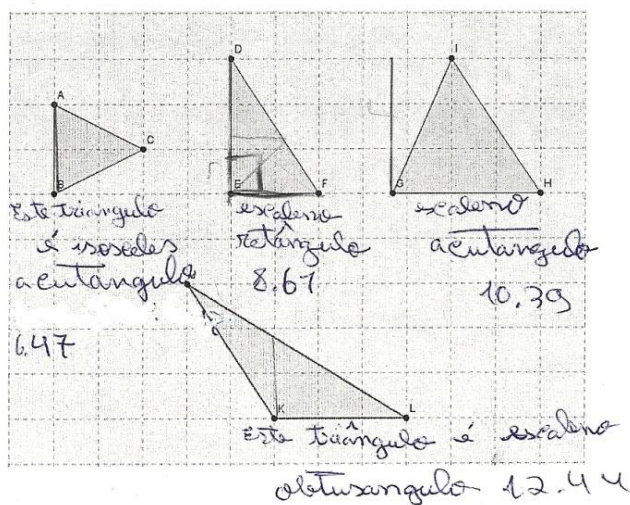 D
I
A
C
B
E
F
G
H
Este triangulo
é isosceles
acutangulo
6.47
escaleno
retângulo
8.61
escaleno
acutangulo
10.39
K
L
Este triângulo é escaleno
obtusangulo 12.44